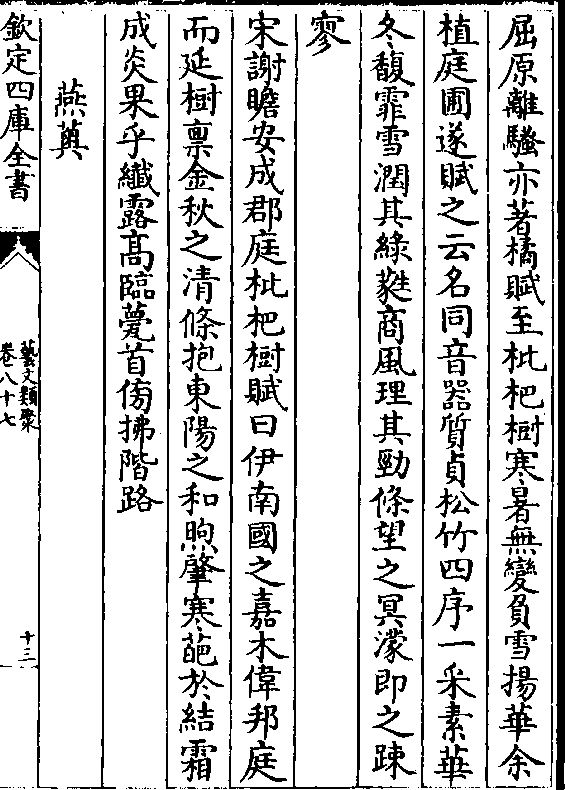 屈原離騷亦著橘賦至枇杷樹寒暑無變負雪揚華余
植庭圃遂賦之云名同音器質貞松竹四序一采素華
冬馥霏雪潤其綠蕤商風理其勁條望之冥濛即之踈
寥
宋謝瞻安成郡庭枇杷樹賦曰伊南國之嘉木偉邦庭
而延樹禀金秋之清條抱東陽之和煦肇寒葩於結霜
成炎果乎纖露髙臨甍首傍拂階路
燕薁
欽定四庫全書
藝文類聚
卷八十七
十三